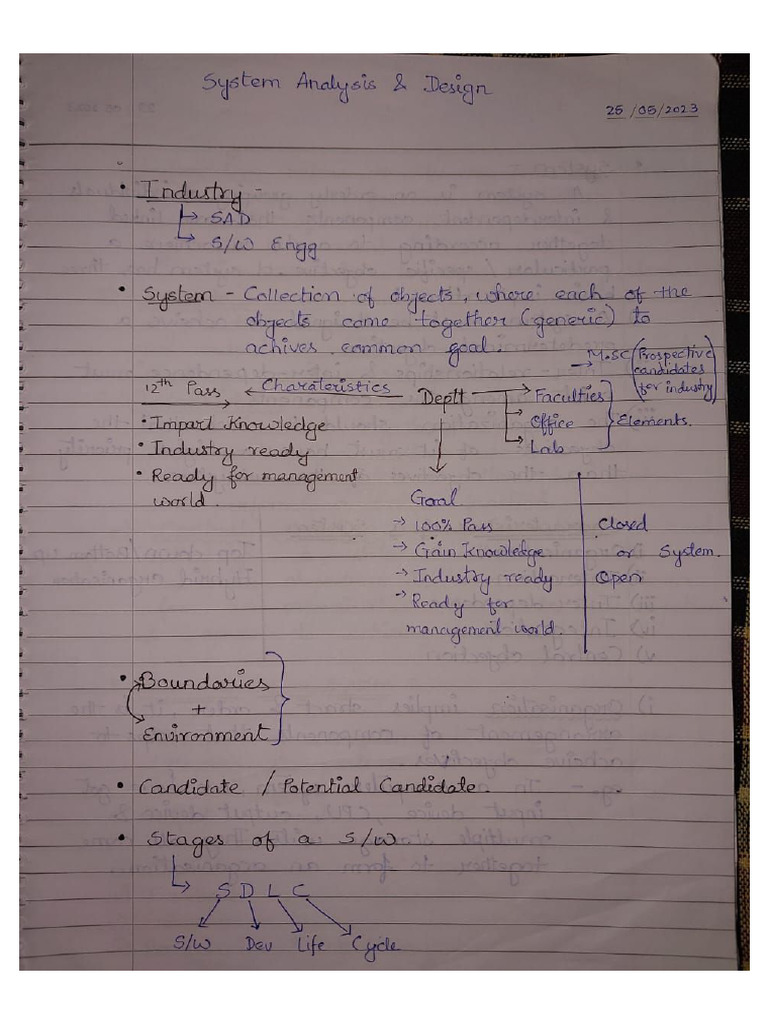 System Analysis & Design
25/05/2023
• Industry -
→ SAD
→ S/W Engg
• System - Collection of objects, where each of the
objects come together (generic) to
achives common goal.
→ M.SC (Prospective
candidates
for industry)
12th Pass ← Charateristics Deptt → Faculties
→ Office
→ Lab
} Elements.
• Impart Knowledge
• Industry ready
• Ready for management
world.
Goal
→ 100% Pass
→ Gain Knowledge
→ Industry ready
→ Ready for
management world.
Closed
or System.
Open
• Boundaries
+
Environment
• Candidate / Potential Candidate.
• Stages of a S/W
→ S D L C
S/W Dev Life Cycle